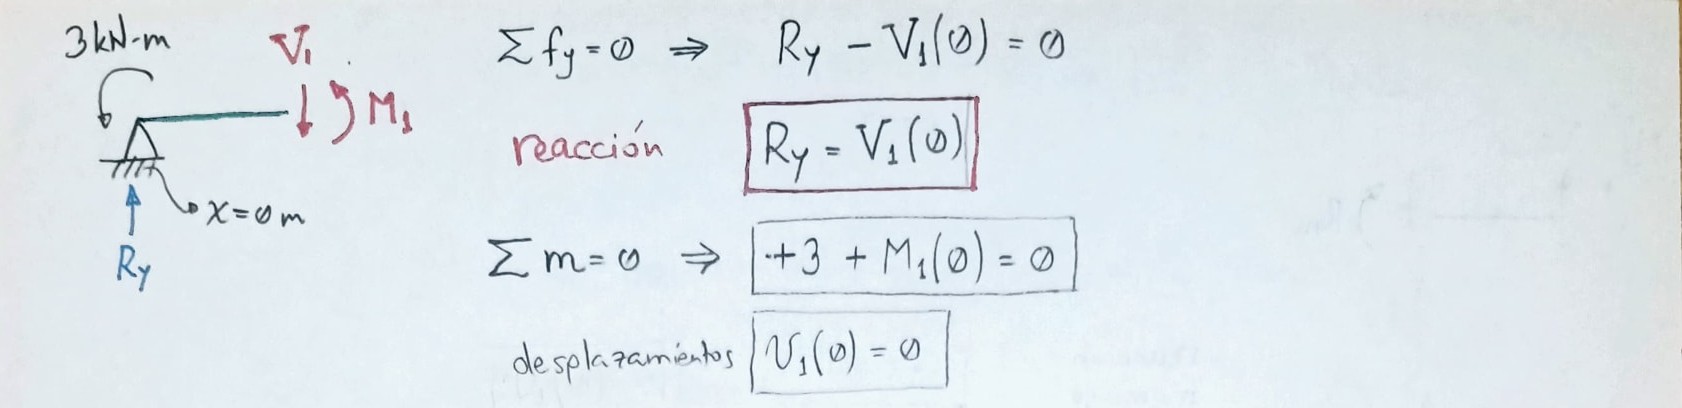 3kN-m
V₁
M₁
x=0m
Ry
Σfy=0 ⇒ Ry - V₁(0) = 0
reacción Ry = V₁(0)
Σm=0 ⇒ +3 + M₁(0) = 0
desplazamientos v₁(0) = 0